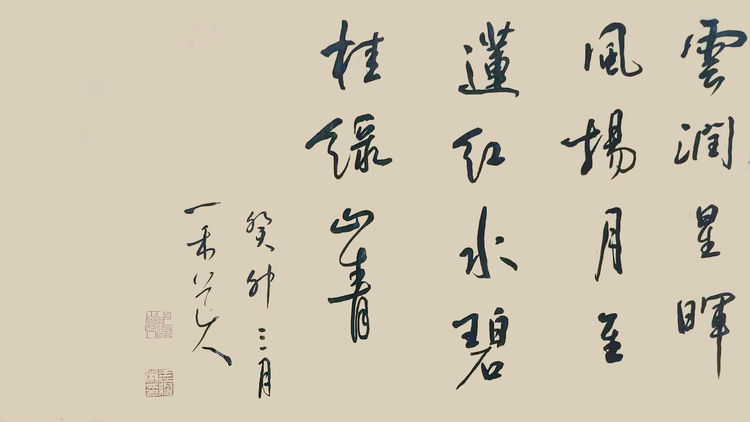 雲潤星暉
風揚月至
蓮紅水碧
桂緑山青
癸卯三月
一禾道人